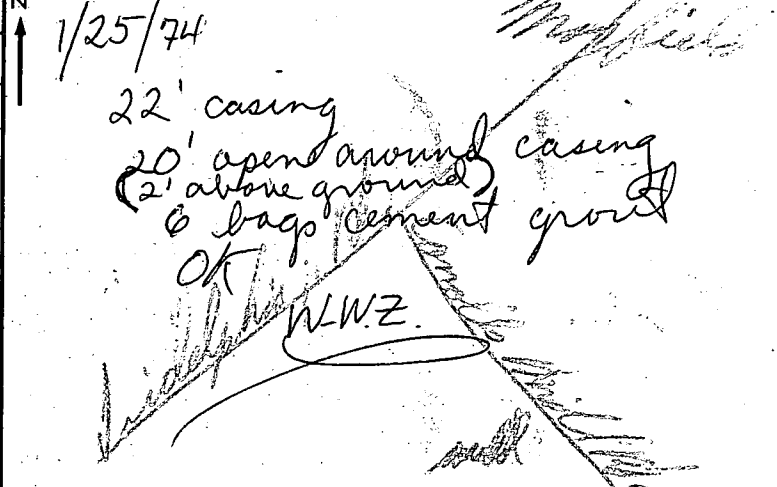 N
1/25/74
Mayfield
22' casing
20' open around casing
(2' above ground)
6 bags cement grout
OK
W.W.Z.
well